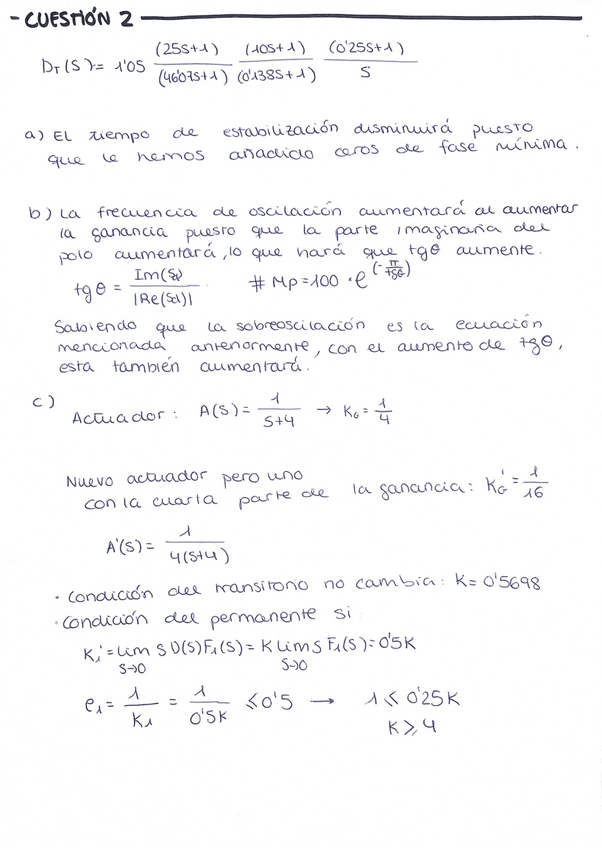 - CUESTIÓN 2
D_T(S) = 1'05 (25S+1)/(46'07S+1) (10S+1)/(0'138S+1) (0'25S+1)/S
a) El tiempo de estabilización disminuirá puesto
que le hemos añadido ceros de fase mínima.
b) La frecuencia de oscilación aumentará al aumentar
la ganancia puesto que la parte imaginaria del
polo aumentará, lo que hará que tgθ aumente.
tgθ = Im(Sd)/|Re(Sd)| # Mp = 100 · e^(-π/tgθ)
Sabiendo que la sobreoscilación es la ecuación
mencionada anteriormente, con el aumento de tgθ,
esta también aumentará.
c)
Actuador: A(S) = 1/(S+4) → K_G = 1/4
Nuevo actuador pero uno
con la cuarta parte de la ganancia: K_G' = 1/16
A'(S) = 1/(4(S+4))
· Condición del transitorio no cambia: K = 0'5698
· Condición del permanente si
K_1' = lim S→0 S D(S) F_1(S) = K lim S→0 S F_1(S) = 0'5K
e_1 = 1/K_1 = 1/0'5K ≤ 0'5 → 1 ≤ 0'25K
K ≥ 4